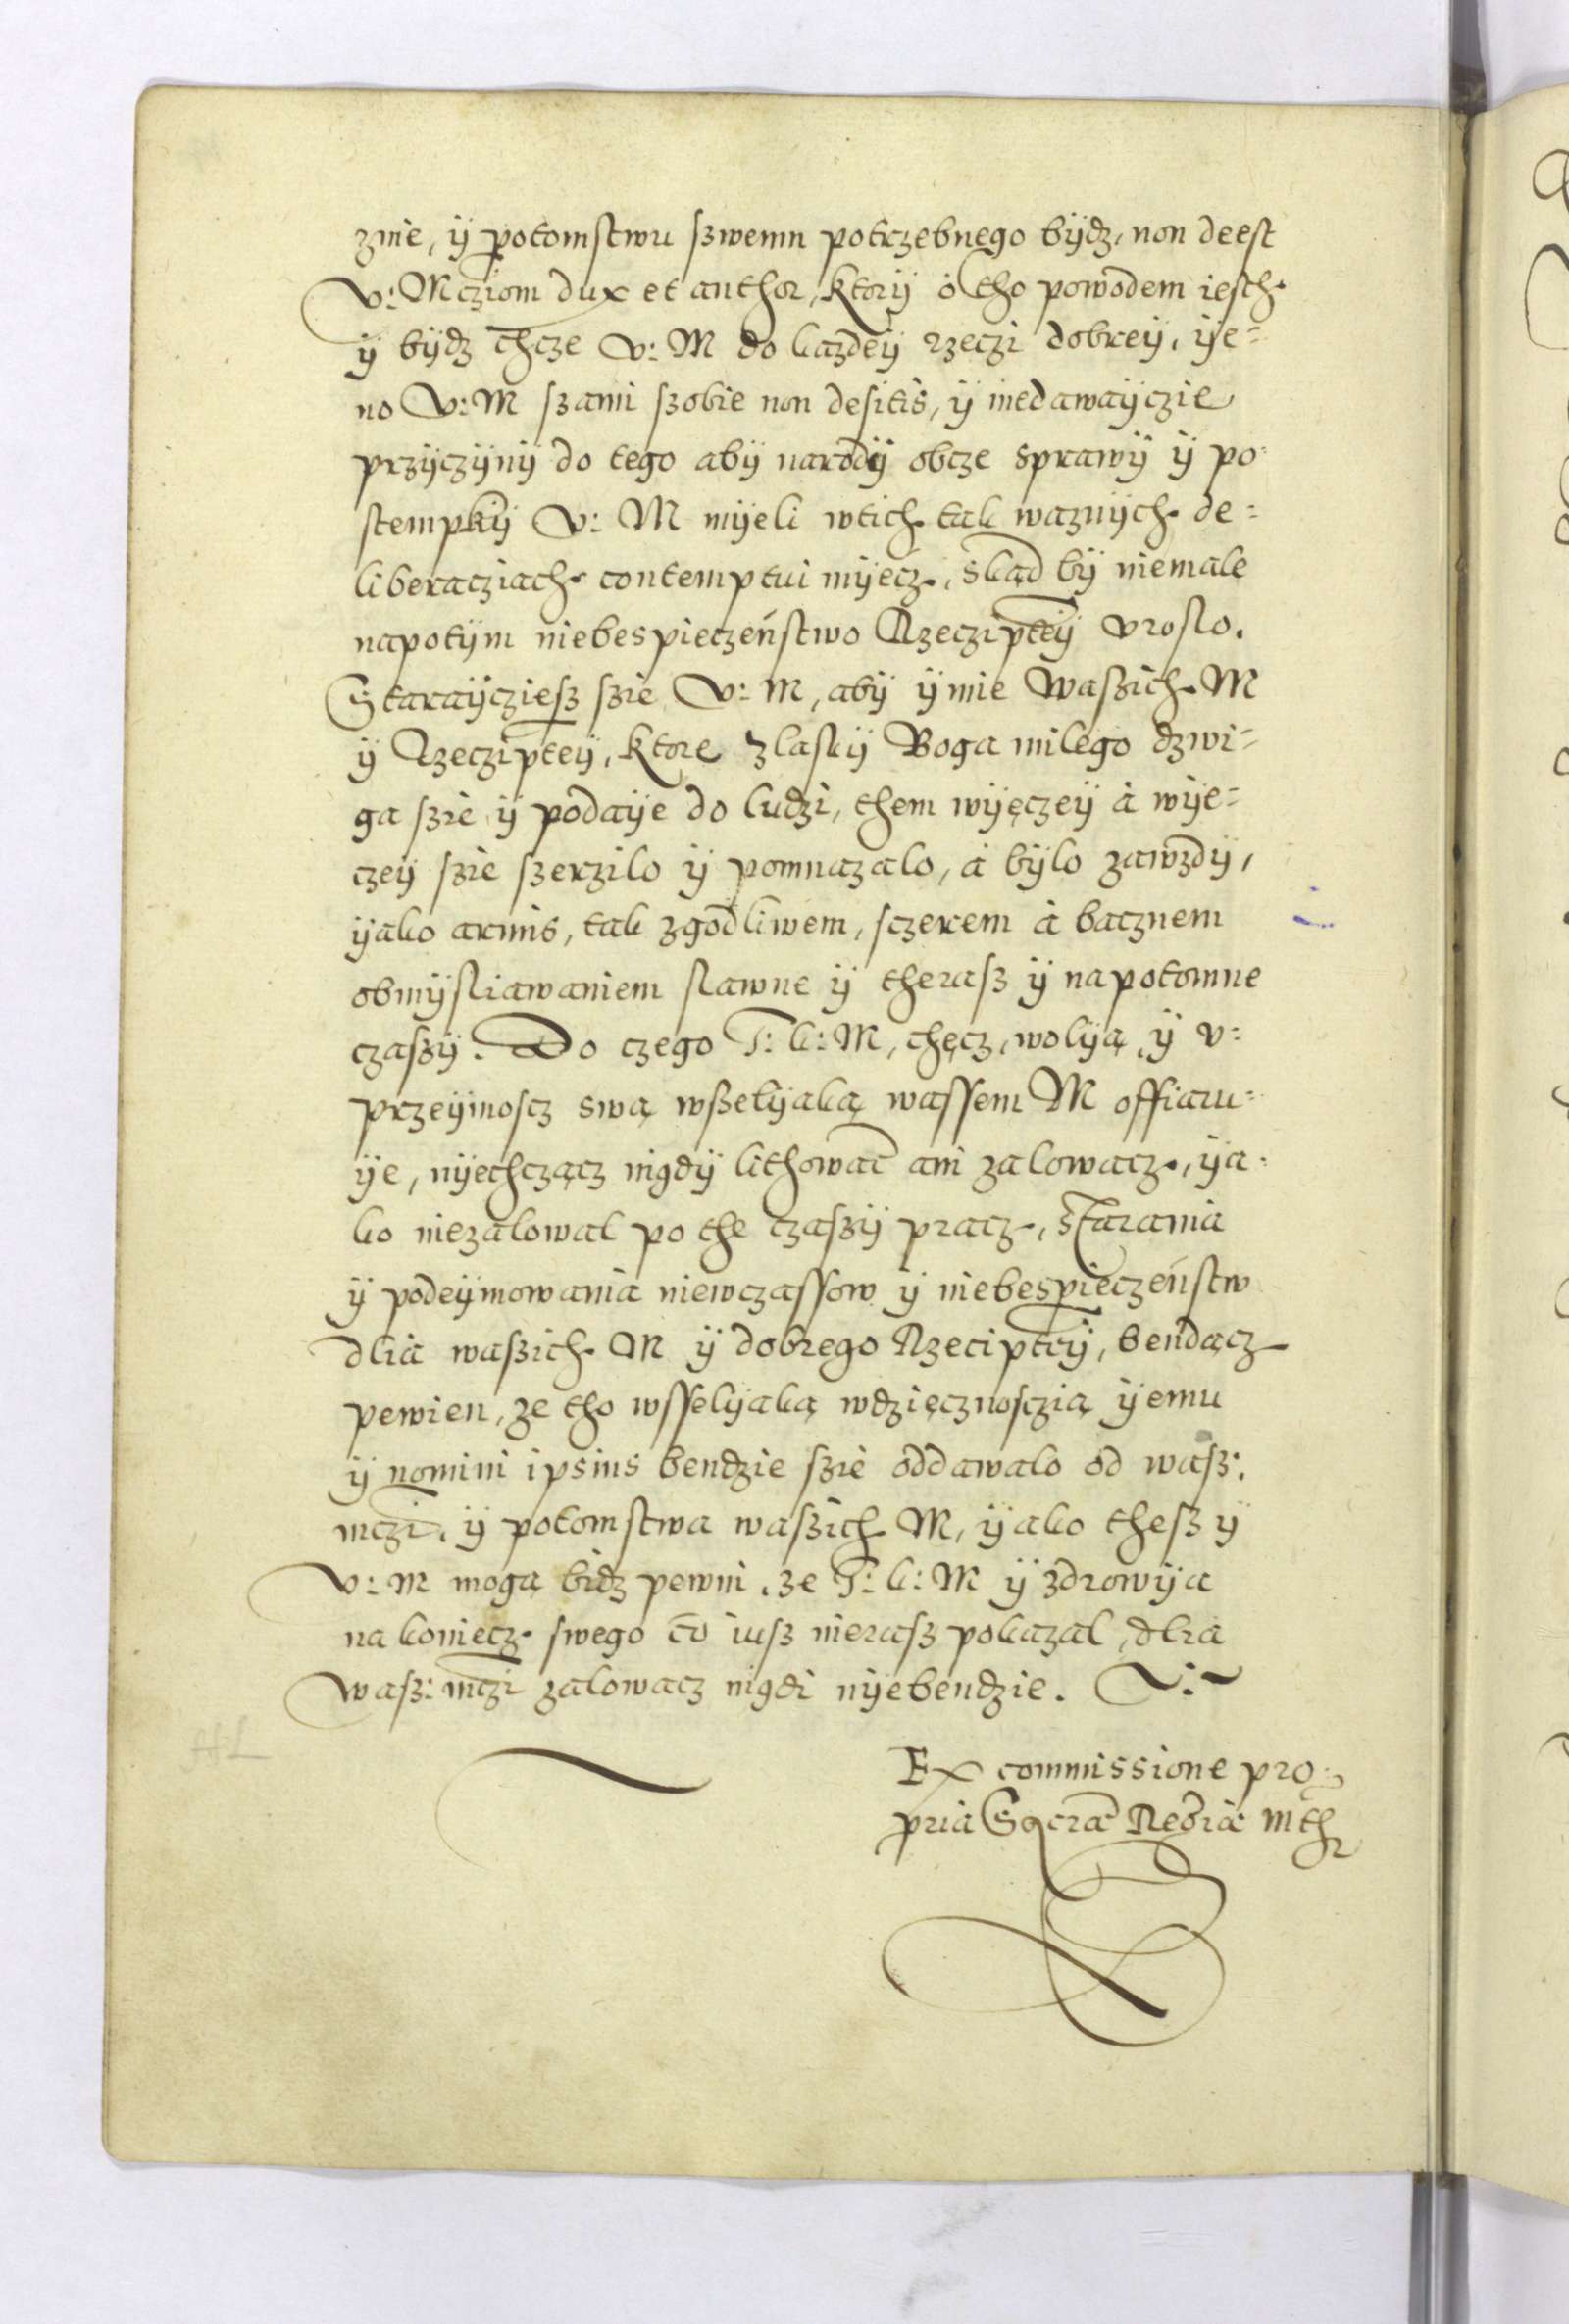 znie, ÿ potomstwu szwemu potrzebnego bÿdz, non deest
V: Mcziom dux et author, ktorÿ o tho powodem iesth
ÿ bÿdz chcze V: M do kazdeÿ rzeczi dobreÿ, ÿe=
no V: M szami szobie non desitis, ÿ niedawaÿczie
przÿczÿnÿ do tego abÿ narodÿ obcze sprawÿ ÿ po=
stempkÿ V: M mÿeli wtich tak waznÿch de=
liberacziach contemptui mÿecz, skąd bÿ niemale
napotÿm niebespieczeństwo Rzeczipteÿ vroslo.
Staraÿcziesz szie V: M, abÿ ÿmie Waszich M
ÿ Rzeczipteÿ, ktore z laskÿ Boga milego dzwi=
ga szie ÿ podaÿe do ludzi, them wÿęczeÿ à wÿe=
czeÿ szie szerzilo ÿ pomnazalo, à bÿlo zawzdÿ,
ÿako armis, tak zgodliwem, sczerem à bacznem
obmÿsliawaniem slawne ÿ therasz ÿ napotomne
czaszÿ. Do czego J: k: M, chęcz, wolÿą, ÿ v=
przeÿmoscz swą wszelÿaką wassem M offiaru=
ÿe, nÿechcząc nigdÿ lithowac ani zalowacz, ÿa=
ko niezalowal po the czaszÿ pracz, starania
ÿ podeÿmowania niewczassow ÿ niebespieczeństw
dlia waszich M ÿ dobrego Rzeciptey, bendącz
pewien, ze tho wsselÿaką wdzięcznosczią ÿemu
ÿ nomini ipsius bendzie szie oddawalo od wasz:
mczi, ÿ potomstwa waszich M, ÿako thesz ÿ
V: M mogą bidz pewni, ze J: k: M ÿ zdrowÿa
na koniecz swego co iusz nierasz pokazal, dlia
wasz: mczi zalowacz nigdi nÿebendzie.
Ex commissione pro=
pria Sacrae Regiae Mtis
HL